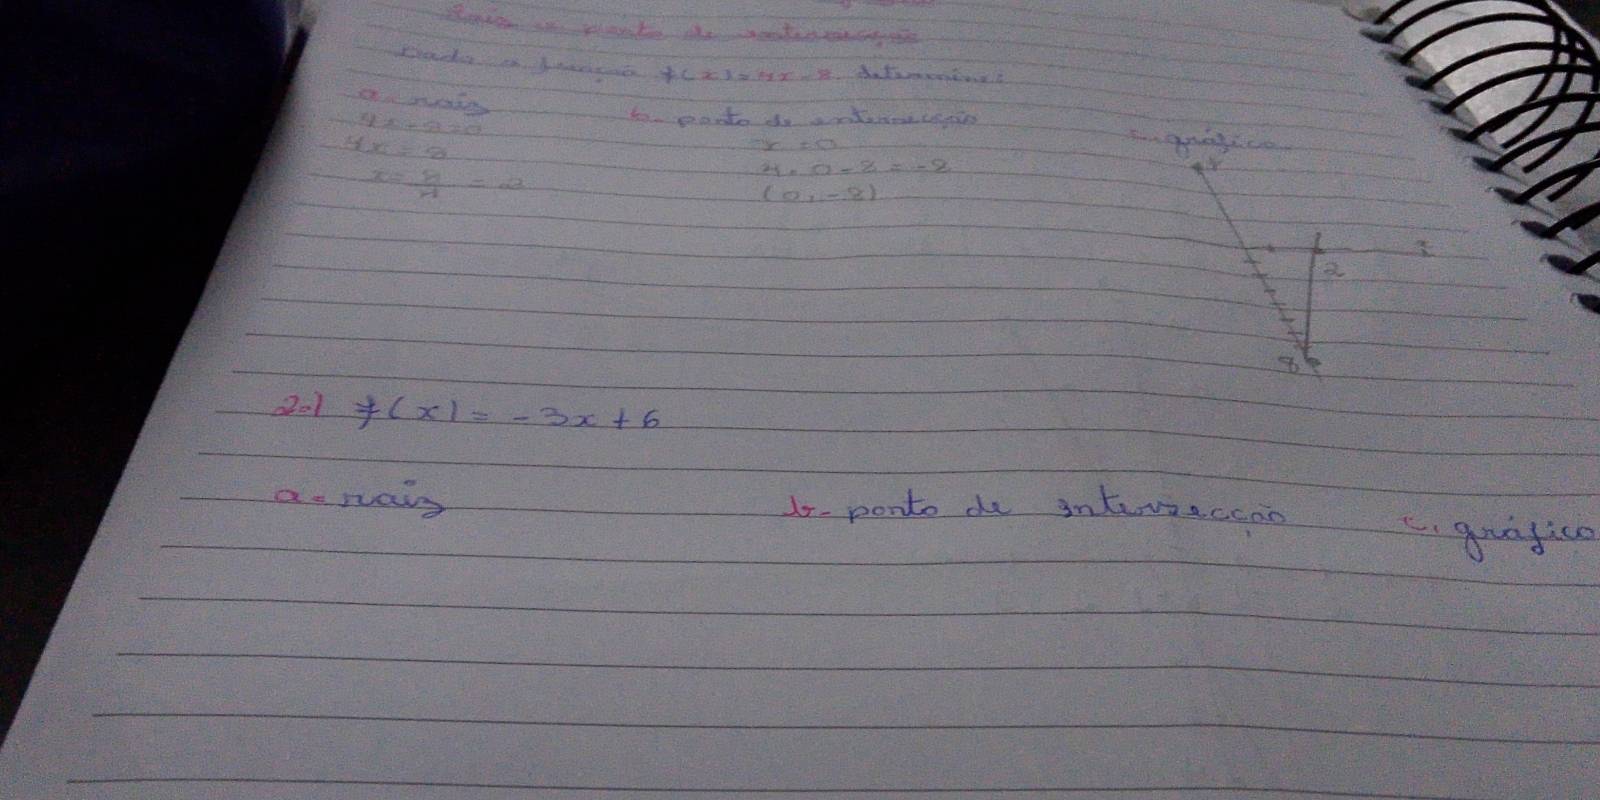 Raiz e ponto de intersecção
Dada a função f(x)=4x-8 determine:
a- raiz
b- ponto de intersecção
c- gráfico
4x-8=0
4x=8
x=8/4=2
x=0
4.0-8=-8
(0,-8)
y
x
2
8
2-) f(x)=-3x+6
a- raiz
b- ponto de intersecção
c. gráfico